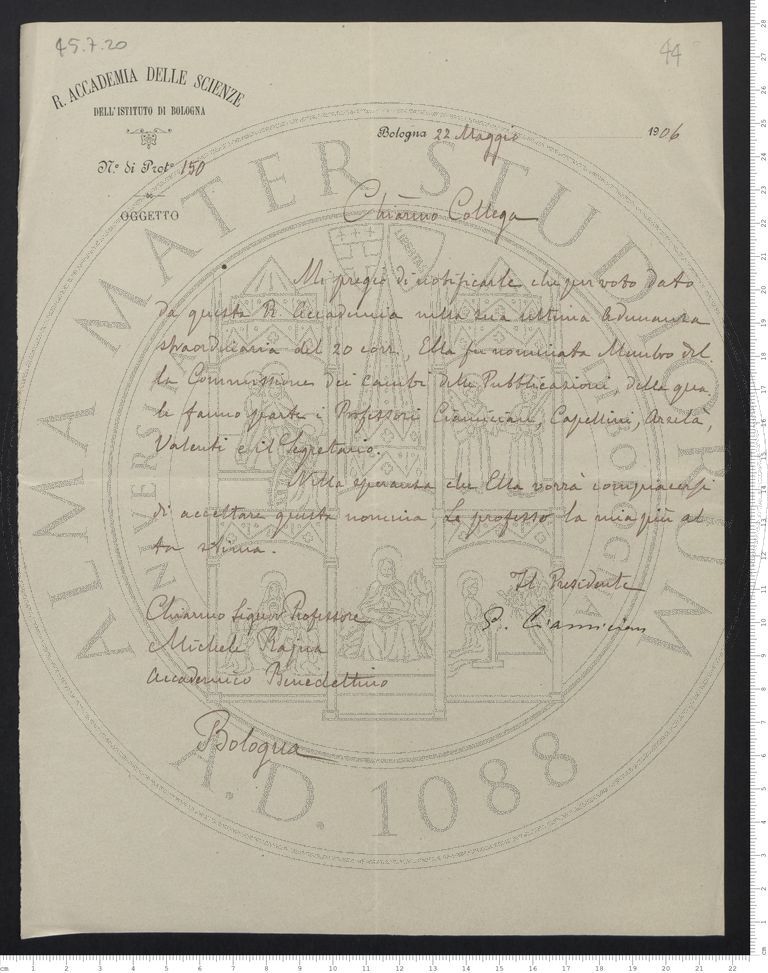 45.7.20
44
R. ACCADEMIA DELLE SCIENZE
DELL'ISTITUTO DI BOLOGNA
Bologna 22 Maggio 1906
N.º di Prot.º 150
OGGETTO
Chiarmo Collega
Mi pregio di notificarle che per voto dato
da questa R. Accademia nella sua ultima Adunanza
straordinaria del 20 corr., Ella fu nominata Membro del
la Commissione dei cambi delle Pubblicazioni, della qua
le fanno parte i Professori Ciamician, Capellini, Arzelà,
Valenti e il Segretario.
Nella speranza che Ella vorrà compiacersi
di accettare questa nomina, Le professo la mia più al
ta stima.
Il Presidente
Chiarmo Signor Professore
G. Ciamician
Michele Rajna
Accademico Benedettino
Bologna
ALMA MATER STUDIORUM
A.D. 1088